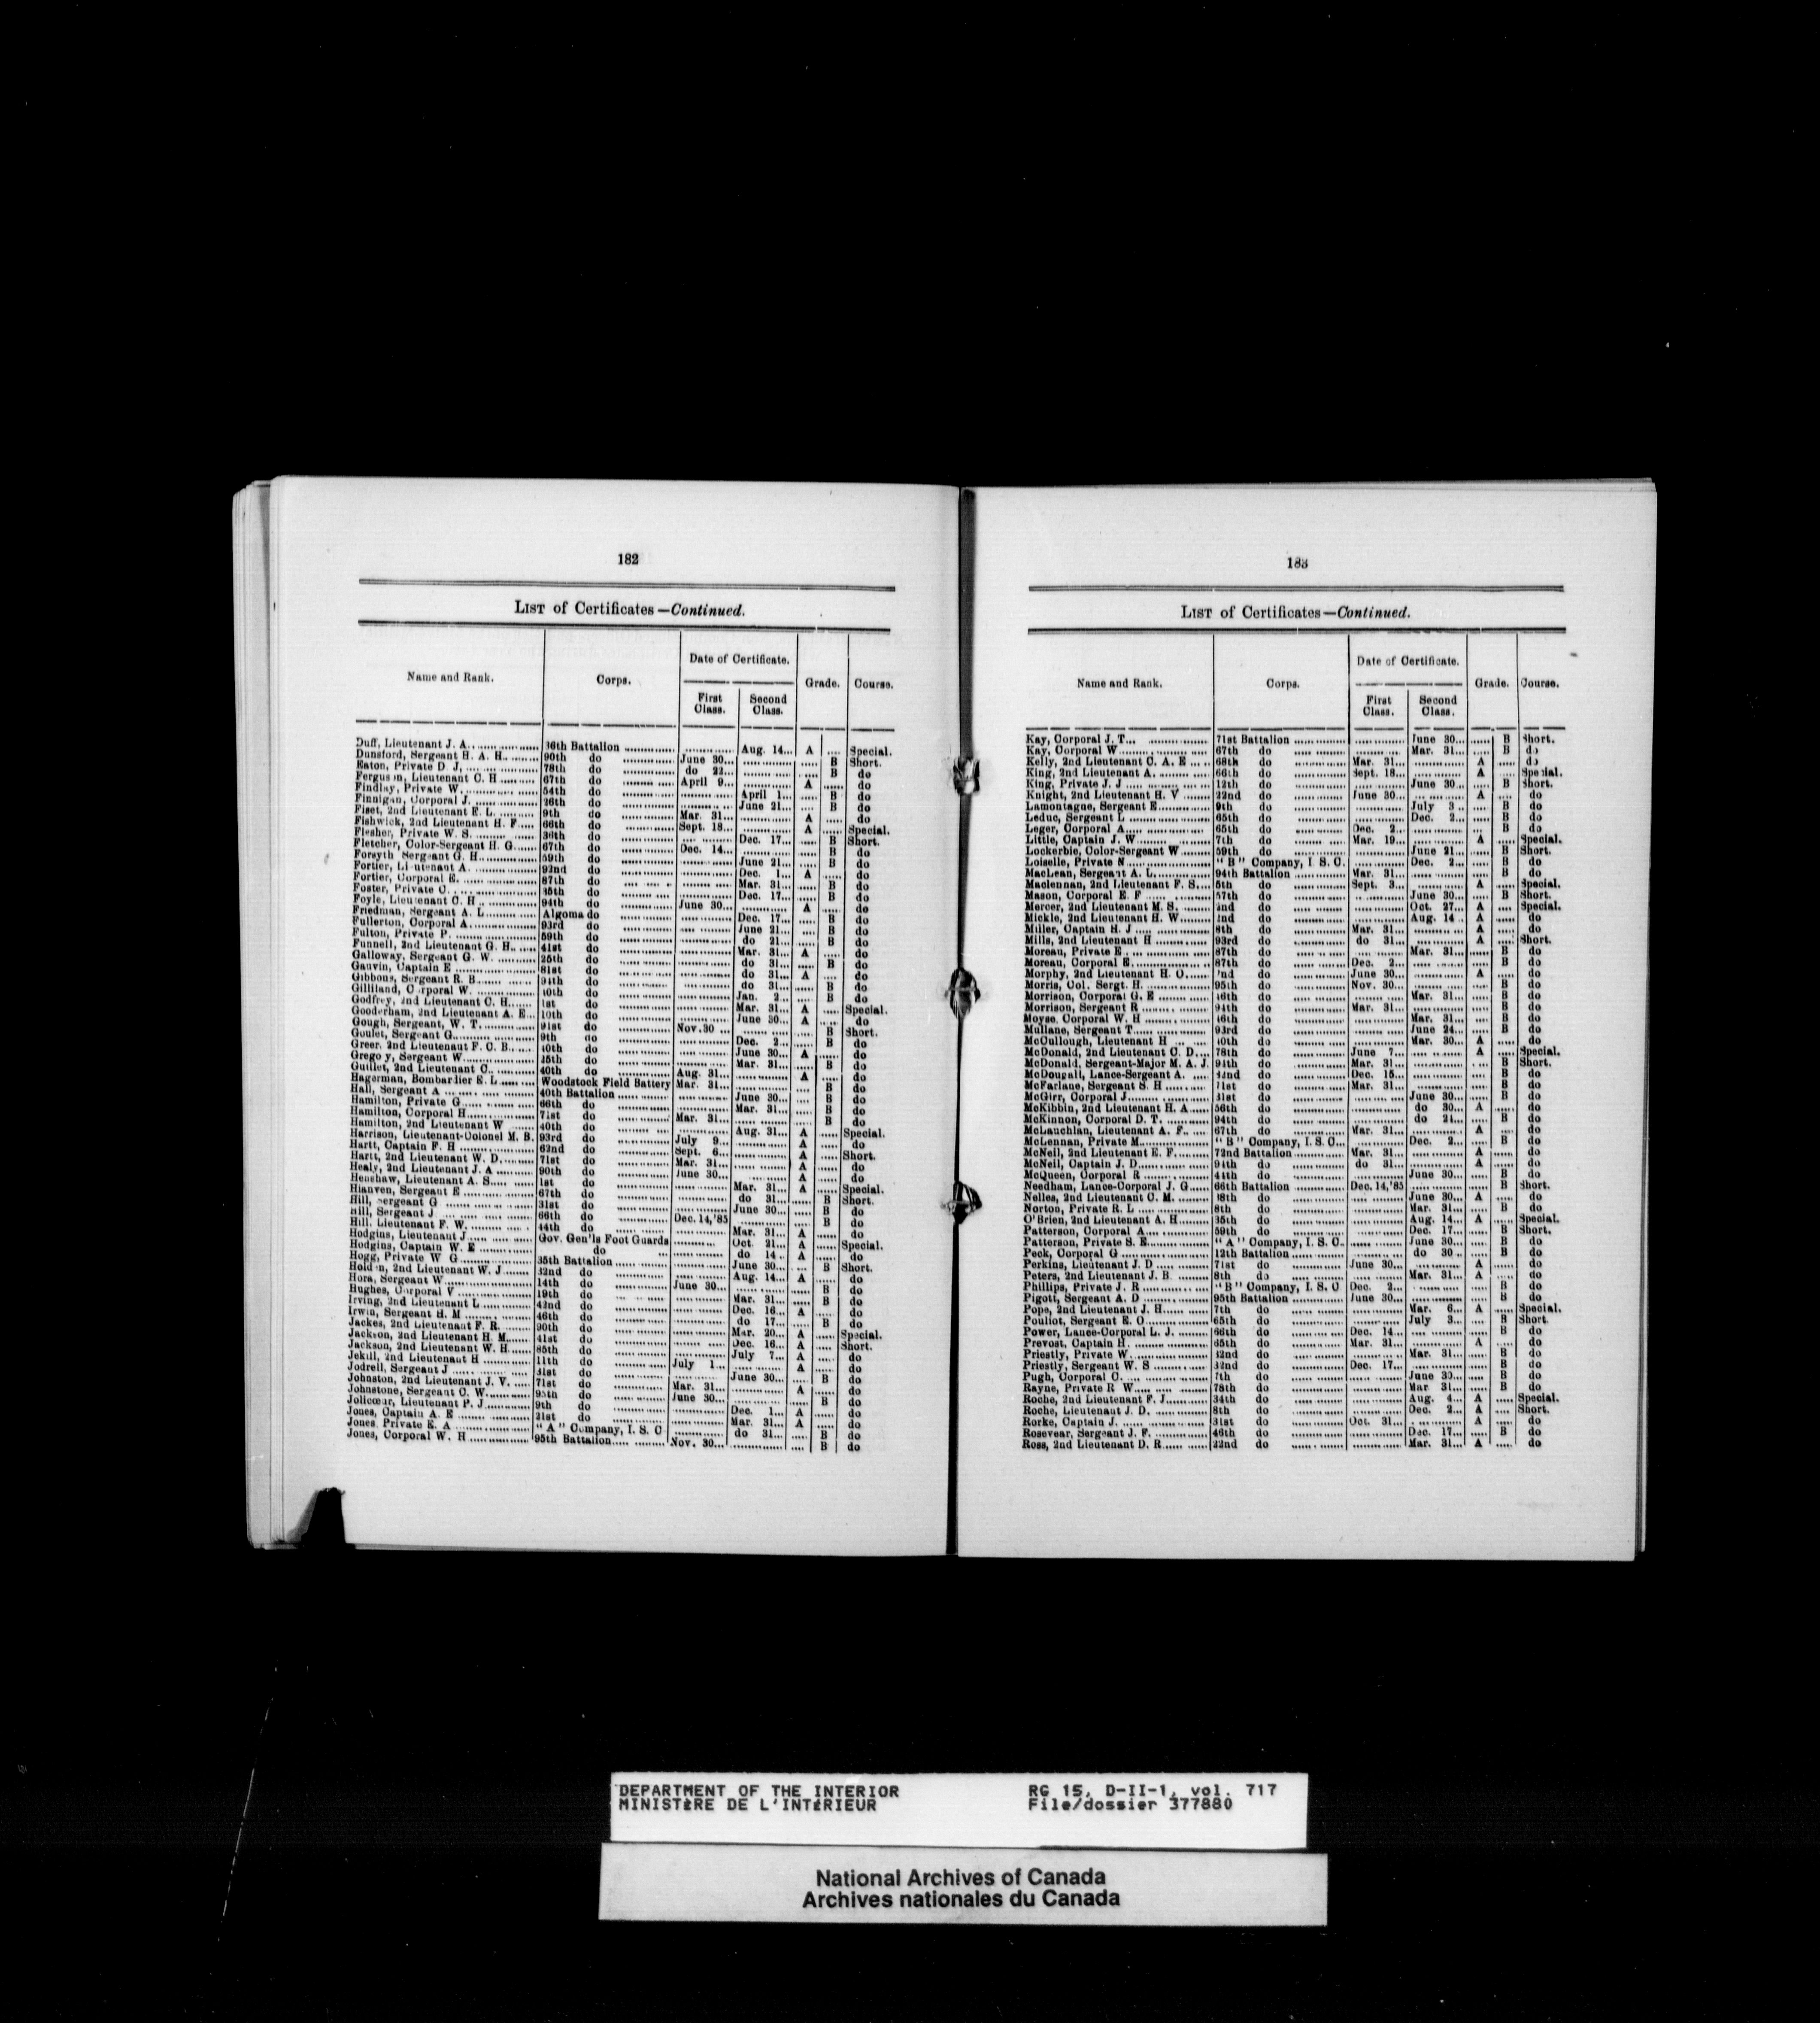 182
LIST of Certificates—Continued.
Name and Rank. Corps. Date of Certificate. Grade. Course.
First Class. Second Class.
Duff, Lieutenant J. A. 36th Battalion Aug. 14... A Special.
Dunsford, Sergeant H. A. H. 90th do June 30... B Short.
Eaton, Private D J. 78th do do 22... B do
Ferguson, Lieutenant C. H 67th do April 9... A do
Findlay, Private W. 54th do April 1... B do
Finnigan, Corporal J. 26th do June 21... B do
Fiset, 2nd Lieutenant E. L. 9th do Mar. 31... A do
Fishwick, 2nd Lieutenant H. F 66th do Sept. 18... A Special.
Flesher, Private W. S. 36th do Dec. 17... B Short.
Fletcher, Color-Sergeant H. G. 67th do Dec. 14... B do
Forsyth Sergeant G. H. 59th do June 21... B do
Fortier, Lieutenant A. 92nd do Dec. 1... A do
Fortier, Corporal E. 87th do Mar. 31... B do
Foster, Private C. 35th do Dec. 17... B do
Foyle, Lieutenant C. H 94th do June 30... A do
Friedman, Sergeant A. L. Algoma do Dec. 17... B do
Fullerton, Corporal A. 93rd do June 21... B do
Fulton, Private P. 59th do do 21... B do
Funnell, 2nd Lieutenant G. H. 41st do Mar. 31... A do
Galloway, Sergeant G. W. 25th do do 31... B do
Gauvin, Captain E 81st do do 31... A do
Gibbons, Sergeant R. B. 94th do do 31... B do
Gilliland, Corporal W. 40th do Jan. 2... B do
Godfrey, 2nd Lieutenant C. H. 1st do Mar. 31... A Special.
Gooderham, 2nd Lieutenant A. E. 10th do June 30... A do
Gough, Sergeant, W. T. 91st do Nov.30 ... B Short.
Goulet, Sergeant G. 9th do Dec. 2... B do
Greer, 2nd Lieutenant F. C. B. 40th do June 30... A do
Gregory, Sergeant W. 35th do Mar. 31... B do
Guillet, 2nd Lieutenant C. 40th do Aug. 31... A do
Hagerman, Bombardier E. L. Woodstock Field Battery Mar. 31... B do
Hall, Sergeant A 40th Battalion June 30... B do
Hamilton, Private G 66th do Mar. 31... B do
Hamilton, Corporal H. 71st do Mar. 31... B do
Hamilton, 2nd Lieutenant W 40th do Aug. 31... A Special.
Harrison, Lieutenant-Colonel M. B. 93rd do July 9... A do
Hartt, Captain F. H 62nd do Sept. 6... A Short.
Hartt, 2nd Lieutenant W. D. 71st do Mar. 31... A do
Healy, 2nd Lieutenant J. A 90th do June 30... A do
Henshaw, Lieutenant A. S. 1st do Mar. 31... A Special.
Hianven, Sergeant E 67th do do 31... B Short.
Hill, Sergeant G 31st do June 30... B do
Hill, Sergeant J 66th do Dec.14,'85 B do
Hill, Lieutenant F. W. 44th do Mar. 31... A do
Hodgins, Lieutenant J Gov. Gen'ls Foot Guards Oct. 21... A Special.
Hodgins, Captain W. E do do 14 .. A do
Hogg, Private W G 35th Battalion June 30... B Short.
Holden, 2nd Lieutenant W. J 32nd do Aug. 14... A do
Hora, Sergeant W. 14th do June 30... B do
Hughes, Corporal V 19th do Mar. 31... B do
Irving, 2nd Lieutenant L 42nd do Dec. 16... A do
Irwin, Sergeant H. M 46th do do 17... B do
Jackes, 2nd Lieutenant F. R. 90th do Mar. 20... A Special.
Jackson, 2nd Lieutenant H. M. 41st do Dec. 16... A Short.
Jackson, 2nd Lieutenant W. H 85th do July 7... A do
Jekill, 2nd Lieutenant H 11th do July 1... A do
Jodrell, Sergeant J 31st do June 30... B do
Johnston, 2nd Lieutenant J. V. 71st do Mar. 31... A do
Johnstone, Sergeant C. W. 95th do June 30... B do
Jolicœur, Lieutenant P. J 9th do Dec. 1... A do
Jones, Captain A. E 21st do Mar. 31... A do
Jones, Private E. A "A" Company, I. S. C do 31... B do
Jones, Corporal W. H 95th Battalion Nov. 30... B do
183
LIST of Certificates—Continued.
Name and Rank. Corps. Date of Certificate. Grade. Course.
First Class. Second Class.
Kay, Corporal J. T. 71st Battalion June 30... B Short.
Kay, Corporal W 67th do Mar. 31... B do
Kelly, 2nd Lieutenant C. A. E 68th do Mar. 31... A do
King, 2nd Lieutenant A. 66th do Sept. 18... A Special.
King, Private J. J 12th do June 30... B Short.
Knight, 2nd Lieutenant H. V 22nd do June 30... A do
Lamontagne, Sergeant E. 9th do July 3 .. B do
Leduc, Sergeant L 65th do Dec. 2... B do
Leger, Corporal A. 65th do Dec. 2.. B do
Little, Captain J. W. 7th do Mar. 19... A Special.
Lockerbie, Color-Sergeant W. 59th do June 21... B Short.
Loiselle, Private N "B" Company, I S. C. Dec. 2... B do
MacLean, Sergeant A. L. 94th Battalion Mar. 31... B do
Maclennan, 2nd Lieutenant F. S. 5th do Sept. 3... A Special.
Mason, Corporal E. F 57th do June 30... B Short.
Mercer, 2nd Lieutenant M. S. 2nd do Oct. 27... A Special.
Mickle, 2nd Lieutenant H. W. 2nd do Aug. 14 .. A do
Miller, Captain H. J 8th do Mar. 31... A do
Mills, 2nd Lieutenant H 93rd do do 31... A Short.
Moreau, Private E. 87th do Mar. 31... B do
Moreau, Corporal E. 87th do Dec. 2... B do
Morphy, 2nd Lieutenant H. O. 2nd do June 30... A do
Morris, Col. Sergt. H. 95th do Nov. 30... B do
Morrison, Corporal G. E 46th do Mar. 31... B do
Morrison, Sergeant R 94th do Mar. 31... B do
Moyse, Corporal W. H 46th do Mar. 31... B do
Mullane, Sergeant T. 93rd do June 24... B do
McCullough, Lieutenant H 40th do Mar. 30... A do
McDonald, 2nd Lieutenant C. D. 78th do June 7... A Special.
McDonald, Sergeant-Major M. A. J. 94th do Mar. 31... B Short.
McDougall, Lance-Sergeant A. 42nd do Dec. 15... B do
McFarlane, Sergeant S. H 71st do Mar. 31... B do
McGirr, Corporal J. 31st do June 30... B do
McKibbin, 2nd Lieutenant H. A 56th do do 30... A do
McKinnon, Corporal D. T. 94th do do 21... B do
McLauchlan, Lieutenant A. F. 67th do Mar. 31... A do
McLennan, Private M. "B" Company, I. S. C. Dec. 2... B do
McNeil, 2nd Lieutenant E. F. 72nd Battalion Mar. 31... A do
McNeil, Captain J. D. 94th do do 31... A do
McQueen, Corporal R 44th do June 30... B do
Needham, Lance-Corporal J. G 66th Battalion Dec.14,'85 B Short.
Nelles, 2nd Lieutenant C. M. 38th do June 30... A do
Norton, Private R. L 8th do Mar. 31... B do
O'Brien, 2nd Lieutenant A. H. 35th do Aug. 14... A Special.
Patterson, Corporal A. 59th do Dec. 17... B Short.
Patterson, Private S. E. "A" Company, I. S. C. June 30... B do
Peck, Corporal G 12th Battalion do 30 .. B do
Perkins, Lieutenant J. D 71st do June 30... A do
Peters, 2nd Lieutenant J. B 8th do Mar. 31... A do
Phillips, Private J. R "B" Company, I. S. C Dec. 2... B do
Pigott, Sergeant A. D 95th Battalion June 30... B do
Pope, 2nd Lieutenant J. H. 7th do Mar. 6... A Special.
Pouliot, Sergeant E. O. 65th do July 3... B Short.
Power, Lance-Corporal L. J. 66th do Dec. 14... B do
Prevost, Captain H 65th do Mar. 31... A do
Priestly, Private W. 32nd do Mar. 31... B do
Priestly, Sergeant W. S 32nd do Dec. 17... B do
Pugh, Corporal C. 7th do June 30... B do
Rayne, Private R W. 78th do Mar 31... B do
Roche, 2nd Lieutenant F. J. 34th do Aug. 4... A Special.
Roche, Lieutenant J. D. 8th do Dec. 2... A Short.
Rorke, Captain J. 31st do Oct. 31... A do
Rosevear, Sergeant J. F. 46th do Dec. 17... B do
Ross, 2nd Lieutenant D. R. 22nd do Mar. 31... A do
DEPARTMENT OF THE INTERIOR RG 15, D-II-1, vol. 717
MINISTÈRE DE L'INTÉRIEUR File/dossier 377880
National Archives of Canada
Archives nationales du Canada